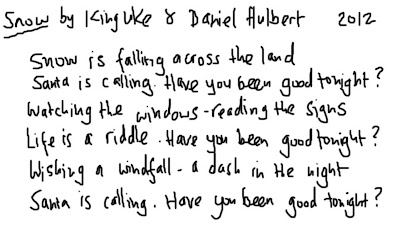 Snow by King Uke & Daniel Hulbert 2012
Snow is falling across the land
Santa is calling. Have you been good tonight?
Watching the windows - reading the signs
Life is a riddle. Have you been good tonight?
Wishing a windfall - a dash in the night
Santa is calling. Have you been good tonight?